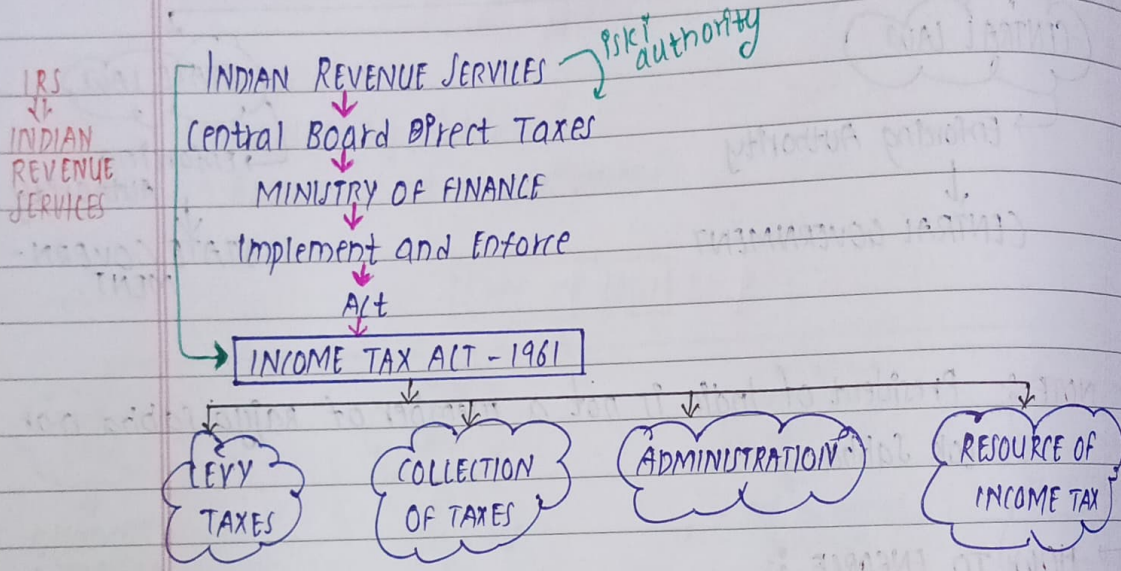 IRS
INDIAN
REVENUE
SERVICES
INDIAN REVENUE SERVICES
iski
authority
Central Board Direct Taxes
MINISTRY OF FINANCE
Implement and Enforce
Act
INCOME TAX ACT - 1961
LEVY
TAXES
COLLECTION
OF TAXES
ADMINISTRATION
RESOURCE OF
INCOME TAX